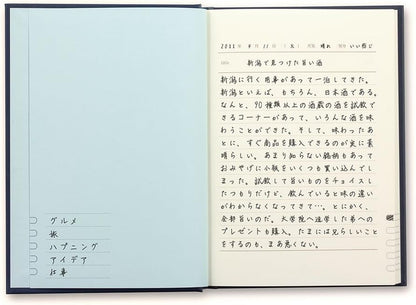 グルメ
旅
ハプニング
アイデア
仕事
2011年 月 22日 (火) 天気 晴れ 気分 いい感じ
新潟で見つけた旨い酒
新潟に行く用事があって一泊してきた。
新潟といえば、もちろん、日本酒である。
なんと、90種類以上の酒蔵の酒を試飲で
きるコーナーがあって、いろんな酒を味
わうことができた。そして、味わったあ
とに、すぐ商品を購入できるのが実に素
晴らしい。あまり知らない銘柄もあって
おみやげに小瓶をいくつも買い込んでし
まった。試飲して旨いものをチョイスし
たつもりだけど、飲んでいると味の違い
がわからなくなってきて…。とにかく、
全部旨いのだ。大学院へ進学した弟への
プレゼントも購入。たまには兄らしいこと
をするのも、まあ悪くない。